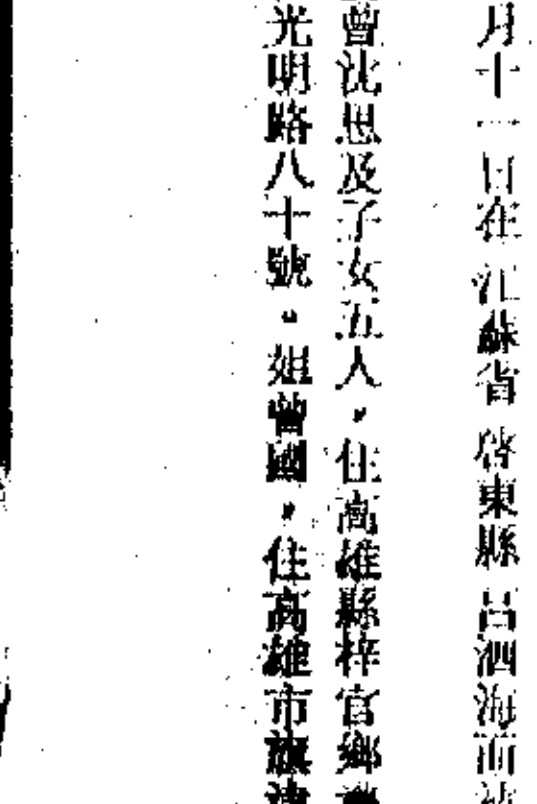 月十一日在江蘇省啓東縣呂泗海面
曾沈思及子女五人，住高雄縣梓官鄉
光明路八十號。姐曾國，住高雄市旗津